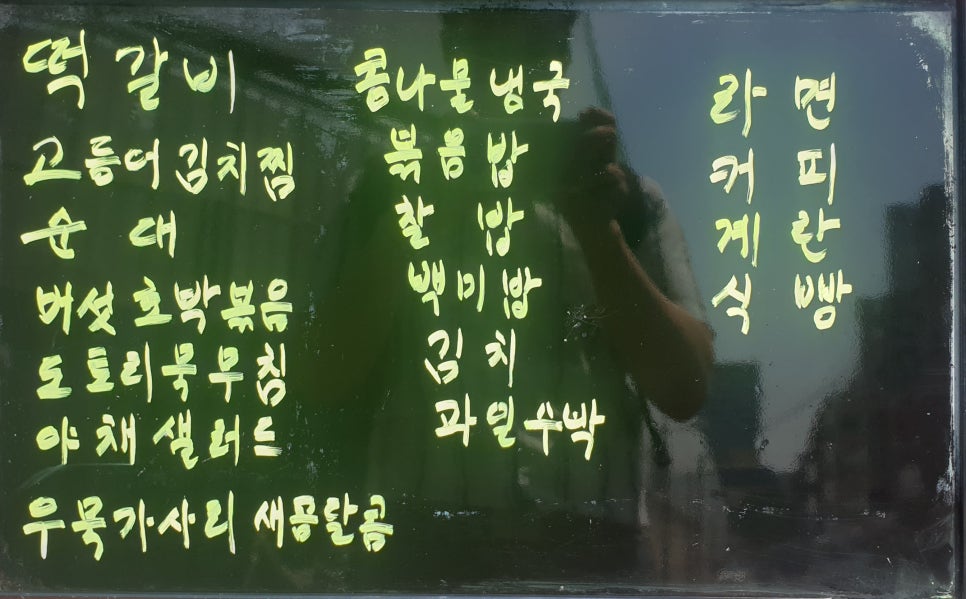 떡갈비
고등어 김치찜
순대
버섯 호박볶음
도토리묵무침
야채 샐러드
우묵가사리 새콤달콤
콩나물냉국
볶음밥
찰밥
백미밥
김치
과일 수박
라면
커피
계란
식빵